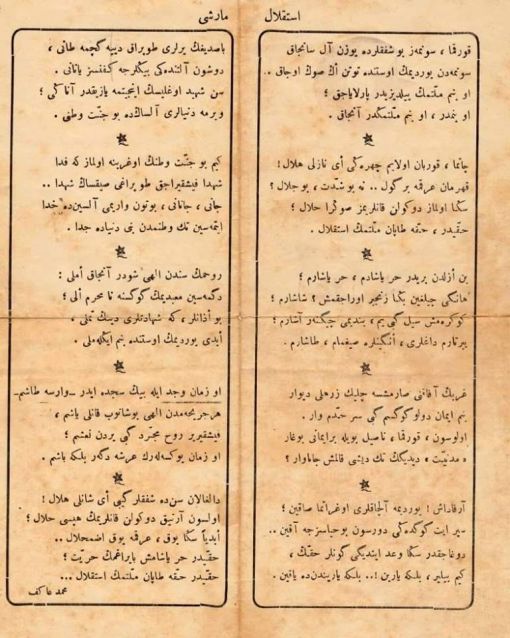 استقلال مارشی
قورقما ، سونمز بو شفقلرده یوزن آل سانجاق
سونمه‌دن یوردیمك اوستنده توتن اڭ صوڭ اوجاق .
او بنم ملتمك ییلدیزیدر پارلایاجق ؛
او بنمدر ، او بنم ملتمكدر آنجاق .
چاتما ، قوربان اولایم چهره‌كی أی نازلی هلال !
قهرمان عرقمه بر كول .. نه بو شدت ، بو جلال ؟
سكا اولماز دوكولن قانلریمز صوكرا حلال ؛
حقیدر ، حقه طاپان ملتمك استقلال .
بن ازلدن بریدر حر یاشادم ، حر یاشارم ؛
هانكی چیلغین بكا زنجیر اوراجقمش ؟ شاشارم ؟
كوكره‌مش سیل كبی یم ، بندیمی چیكنه‌ر آشارم ؛
ییرتارم داغلری ، أنكینلره صیغمام ، طاشارم .
غربك آفاقنی صارمشسه چلیك زرهلی دیوار
بنم ایمان دولو كوكسم كبی سر حدم وار .
اولوسون ، قورقما ، ناصیل بویله بر ایمانی بوغار
« مدنیت » دیدیكك تك دیشی قالمش جاناوار ؟
آرقداش ! یوردیمه آلچاقلری اوغراتما صاقین ؛
سپر ایت كوده‌كی دورسون بو حیاسزجه آقین ..
دوغاجقدر سكا وعد ایتدیكی كونلر حقك ،
كیم بیلیر ، بلكه یارین !.. بلكه یاریندن ده یاقین .
باصدیغك یرلری طوپراق دییه كچمه طانی ،
دوشون آلتنده‌كی بیكلرجه كفنسز یاتانی .
سن شهید اوغلیسك اینجیتمه یازیقدر آتاكی ؛
ویرمه دنیالری آلسه‌ك ده بو جنت وطنی .
كیم بو جنت وطنك اوغرینه اولماز كه فدا
شهدا فیشقیراجق طوپراغی صیقسه‌ك شهدا ..
جانی ، جانانی ، بوتون واریمی آلسین ده خدا
ایتمه‌سین تك وطنمدن بنی دنیاده جدا .
روحمك سندن الهی شودر آنجاق أملی :
دكمه‌سین معبدیمك كوكسنه نا محرم ألی ؛
بو أذانلر ، كه شهادتلری دینك تملی ،
أبدی یوردیمك اوستنده بنم ایكله‌ملی .
او زمان وجد ایله بیك سجده ایدر ـ وارسه طاشم ـ
هر جریحه‌مدن الهی بوشانوب قانلی یاشم ،
فیشقیریر روح مجرد كبی یردن نعشم ؛
او زمان یوكسه‌له‌رك عرشه دكه‌ر بلكه باشم .
دالغالان سن ده شفقلر كبی أی شانلی هلال !
اولسون آرتیق دوكولن قانلریمك هپسی حلال ؛
أبدیا سكا یوق ، عرقمه یوق اضمحلال ..
حقیدر حر یاشامش بایراغمك حریت ؛
حقیدر حقه طاپان ملتمك استقلال ...
محمد عاكف